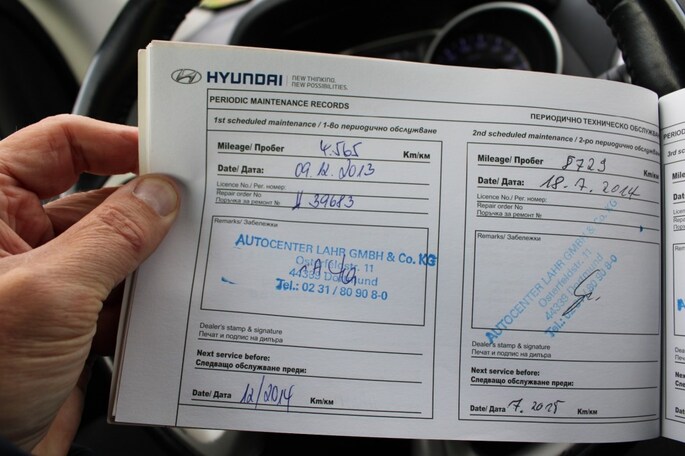 HYUNDAI
NEW THINKING.
NEW POSSIBILITIES.
PERIODIC MAINTENANCE RECORDS
1st scheduled maintenance / 1-во периодично обслужване
Mileage/ Пробег 4.565 Km/км
Date/ Дата: 09.12.2013
Licence No./ Рег. номер:
Repair order No
Поръчка за ремонт № 39683
Remarks/ Забележки
AUTOCENTER LAHR GMBH & Co. KG
Osterfeldstr. 11
44339 Dortmund
Tel.: 02 31 / 80 90 8-0
Dealer's stamp & signature
Печат и подпис на дилъра
Next service before:
Следващо обслужване преди:
Date/ Дата 12/2014 Km/км
ПЕРИОДИЧНО ТЕХНИЧЕСКО ОБСЛУЖВА
2nd scheduled maintenance / 2-ро периодично обслужван
Mileage/ Пробег 8729 Km/км
Date/ Дата: 18.7.2014
Licence No./ Рег. номер:
Repair order No
Поръчка за ремонт №
Remarks/ Забележки
AUTOCENTER LAHR GMBH & Co. KG
Osterfeldstr. 11
44339 Dortmund
Tel.: 02 31 / 80 90 8-0
Dealer's stamp & signature
Печат и подпис на дилъра
Next service before:
Следващо обслужване преди:
Date/ Дата 7.2015 Km/км